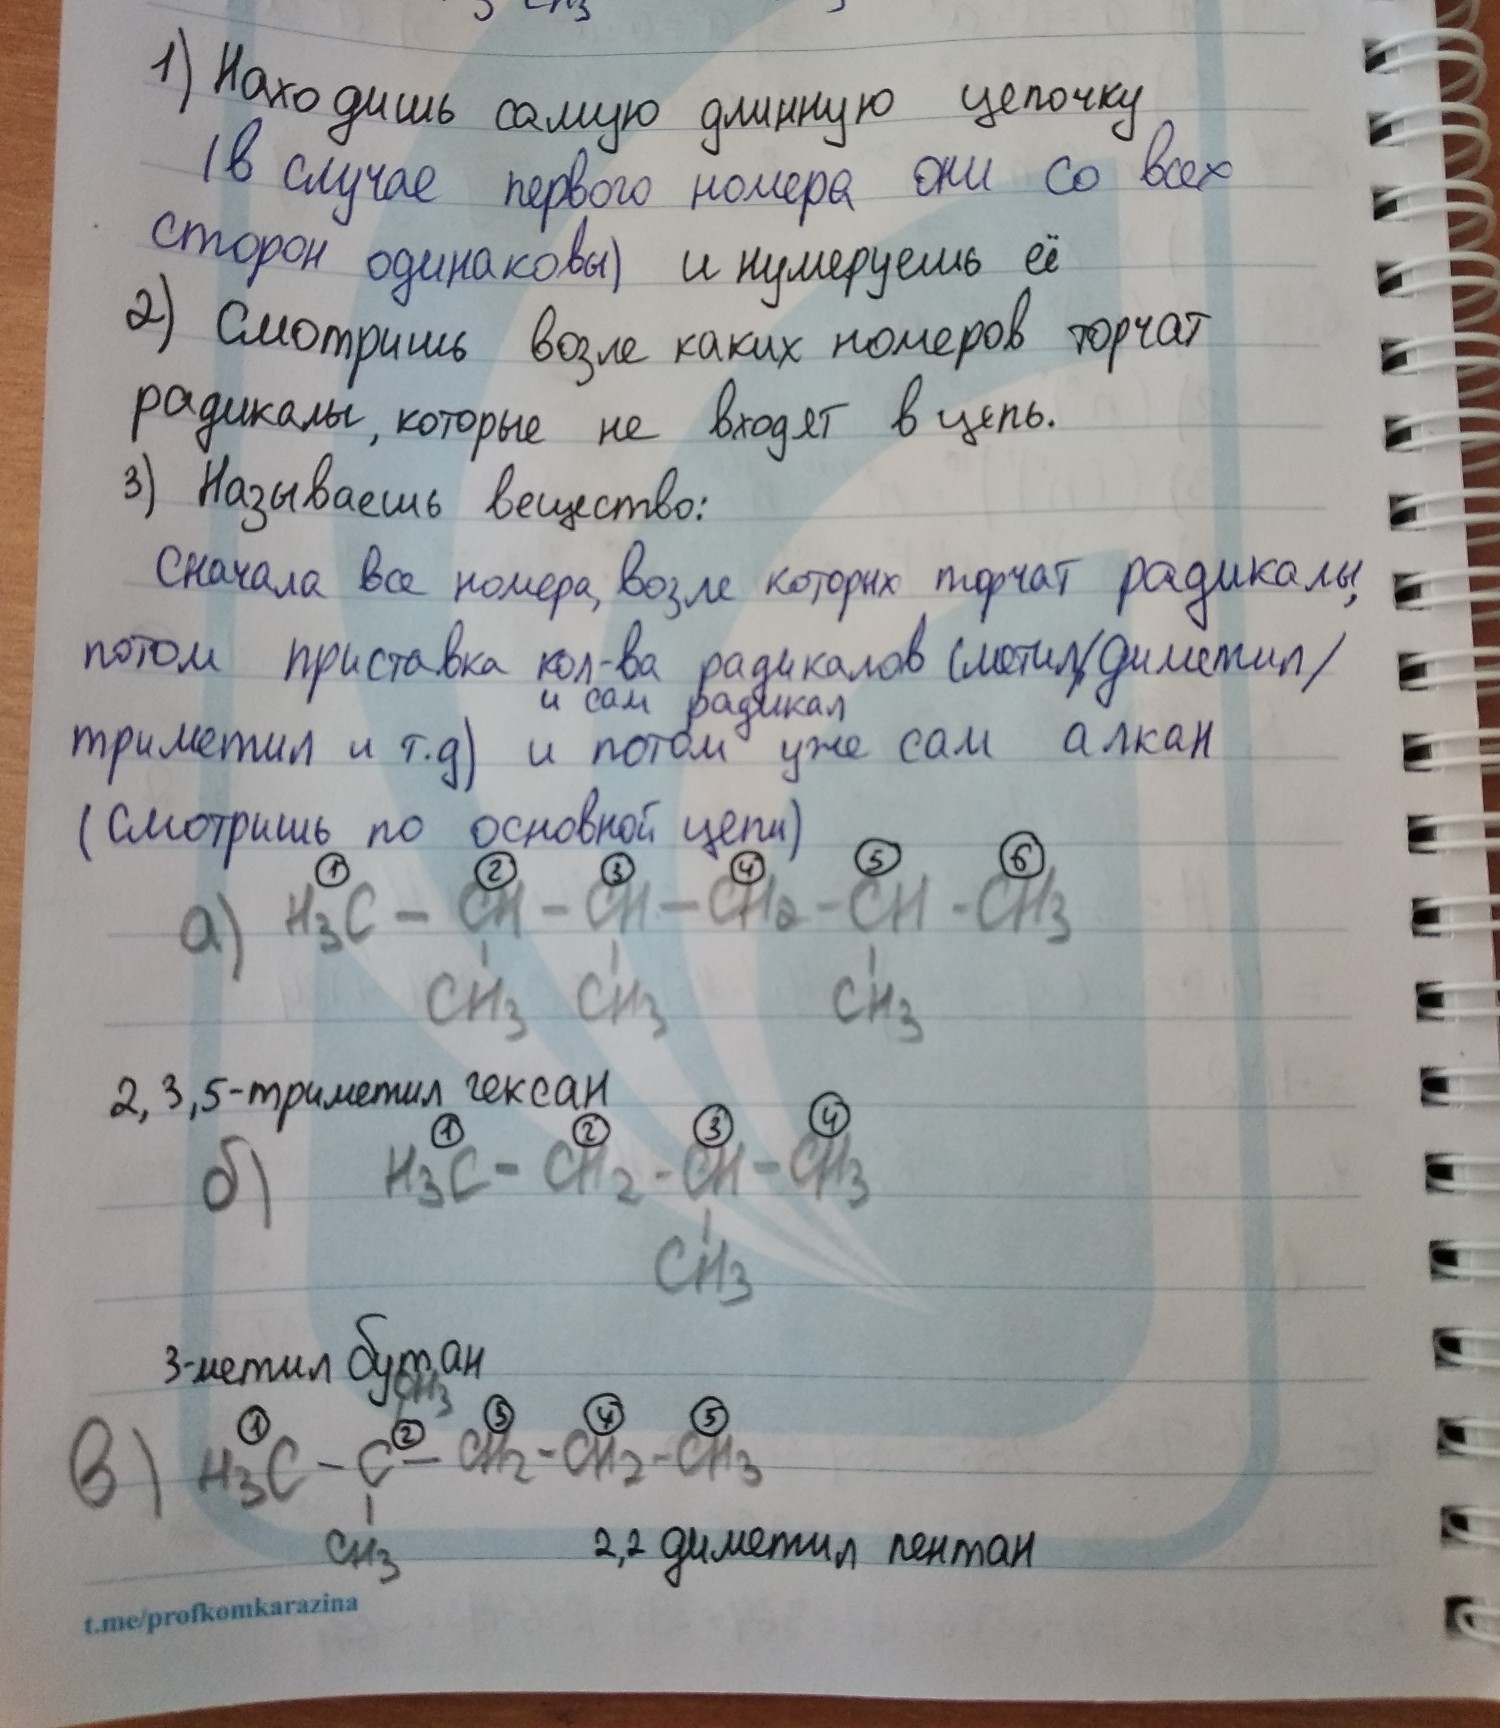 CH3
1) Находишь самую длинную цепочку
(в случае первого номера они со всех
сторон одинаковы) и нумеруешь её
2) Смотришь возле каких номеров торчат
радикалы, которые не входят в цепь.
3) Называешь вещество:
Сначала все номера, возле которых торчат радикалы,
потом приставка кол-ва радикалов (метил/диметил/
и сам радикал
триметил и т.д) и потом уже сам алкан
(смотришь по основной цепи)
1 2 3 4 5 6
а) H3C - CH - CH - CH2 - CH - CH3
CH3 CH3 CH3
2, 3, 5-триметил гексан
1 2 3 4
б) H3C - CH2 - CH - CH3
CH3
3-метил бутан
CH3
1 2 3 4 5
в) H3C - C - CH2 - CH2 - CH3
CH3
2,2 диметил пентан
t.me/profkomkarazina